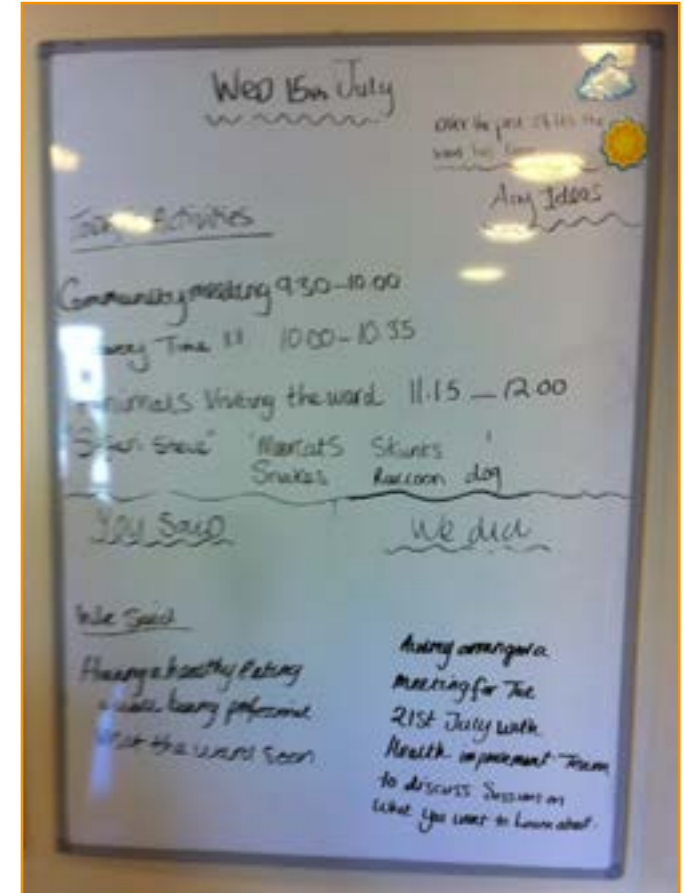 Wed 15th July
Over the past 24 hrs the
ward has been
Any Ideas
Today's Activities
Community meeting 9.30-10.00
Time !! 10.00-10.35
Animals Visiting the ward 11.15 - 12.00
"Safari Steve" 'Meercats Skunks '
Snakes Raccoon dog
You Said
We did
We Said
Having a healthy Eating
the ward soon
arranged a
meeting for The
21st July with
Health improvement Team
to discuss Sessions on
What you want to know about.